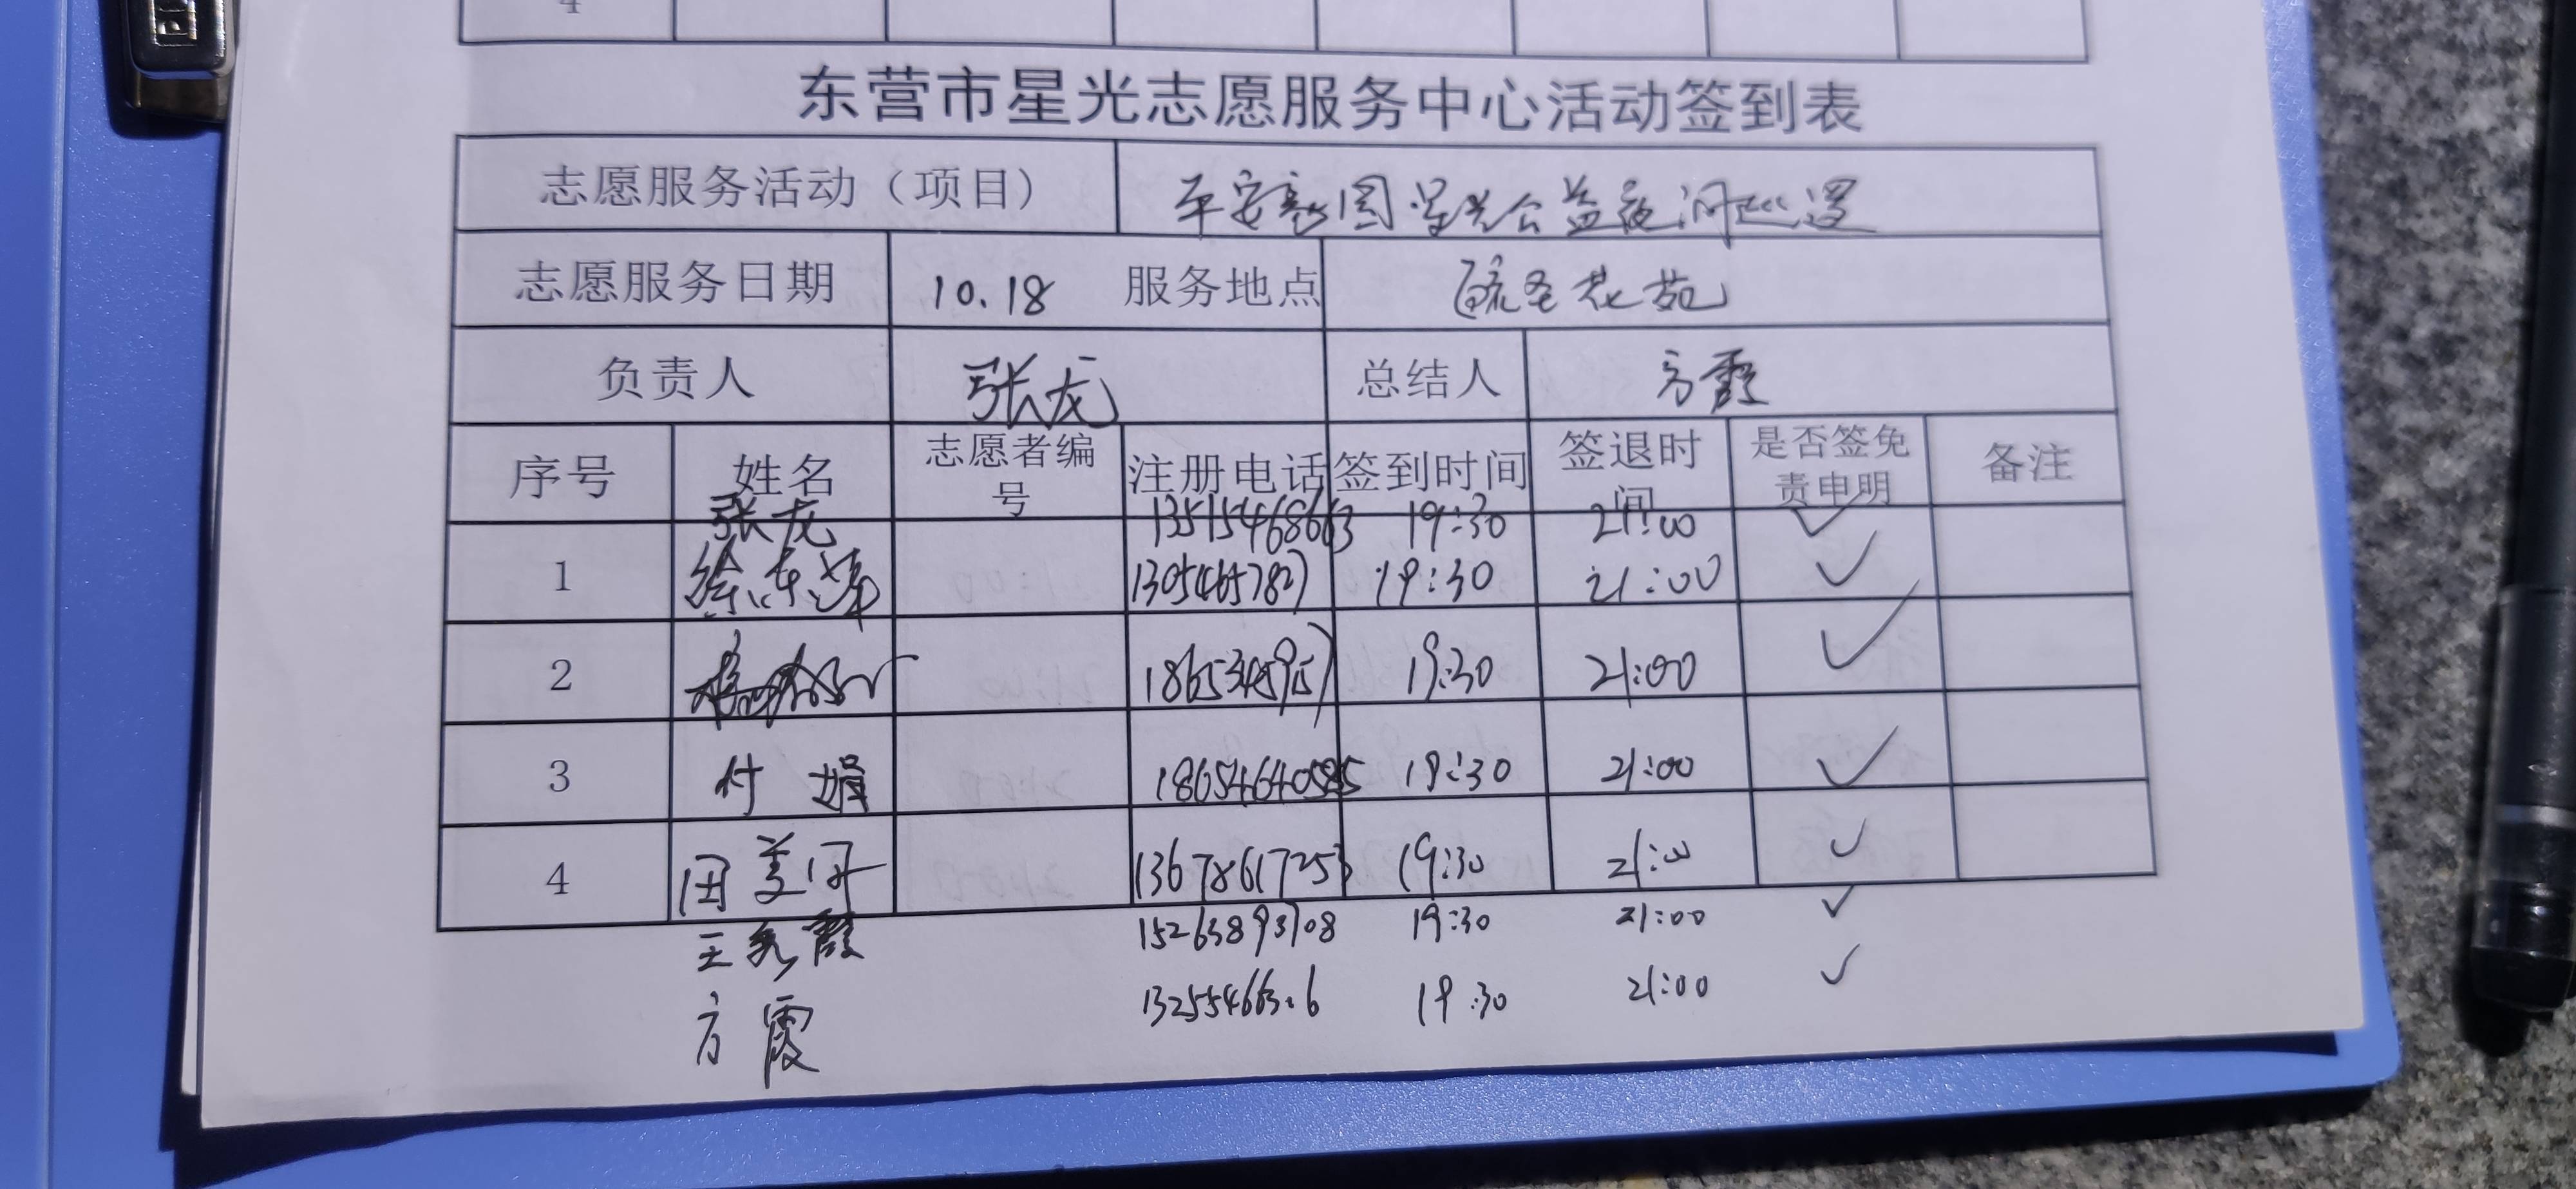 4
东营市星光志愿服务中心活动签到表
志愿服务活动（项目） 平安家园星光公益夜间巡逻
志愿服务日期 10.18 服务地点 花苑
负责人 张龙 总结人 方霞
序号 姓名 志愿者编号 注册电话 签到时间 签退时间 是否签免责申明 备注
张龙 13515468663 19:30 21:00 ✓
1 徐东 13054657827 19:30 21:00 ✓
2 19:30 21:00 ✓
3 付娟 19:30 21:00 ✓
4 田美 13678617253 19:30 21:00 ✓
王秀霞 15263893708 19:30 21:00 ✓
方霞 19:30 21:00 ✓